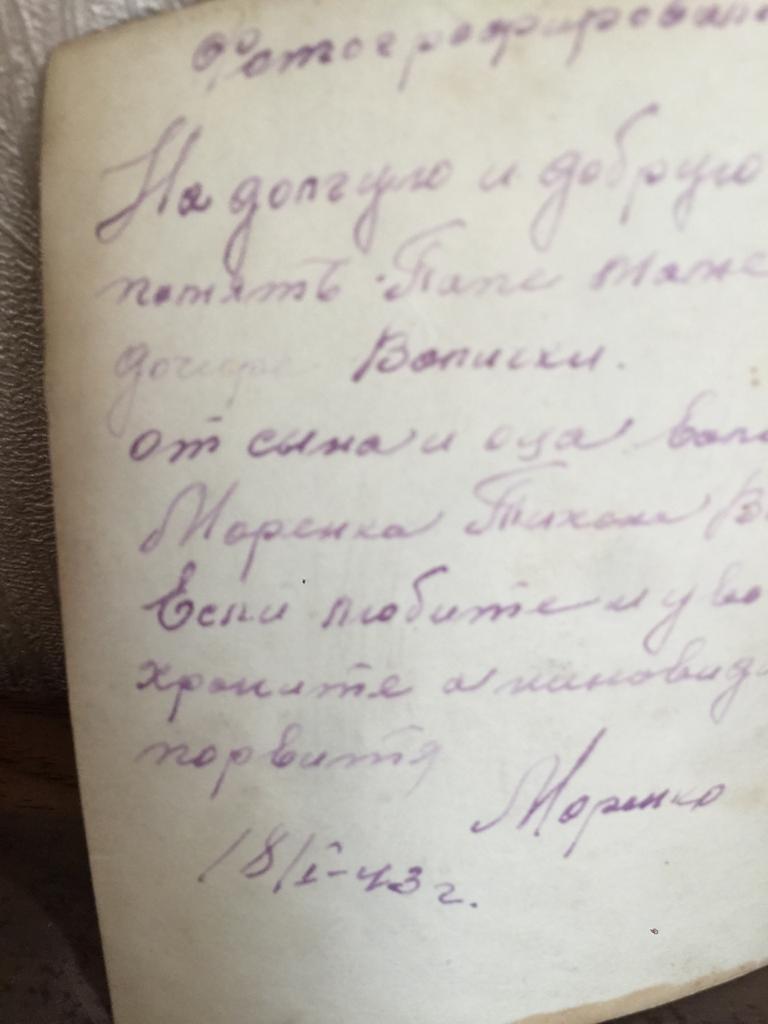 Фотографирован
На долгую и добрую
помять. Папе Маме
дочере Валички.
от сына и оца
Моренка Тихона В
Если любите и ува
храните а ниновид
порвитя
Моренко
18/I-43 г.